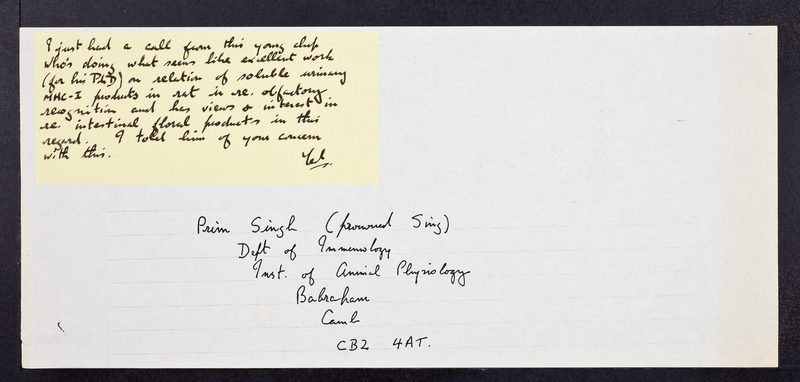 I just had a call from this young chap
who's doing what seems like excellent work
(for his PhD) on relation of soluble urinary
MHC-I products in rat in re. olfactory
recognition and has views & interest in
re. intestinal floral products in this
regard. I told him of your concern
with this.
Prim Singh (pronounced Sing)
Dept of Immunology
Inst. of Animal Physiology
Babraham
Camb
CB2 4AT.